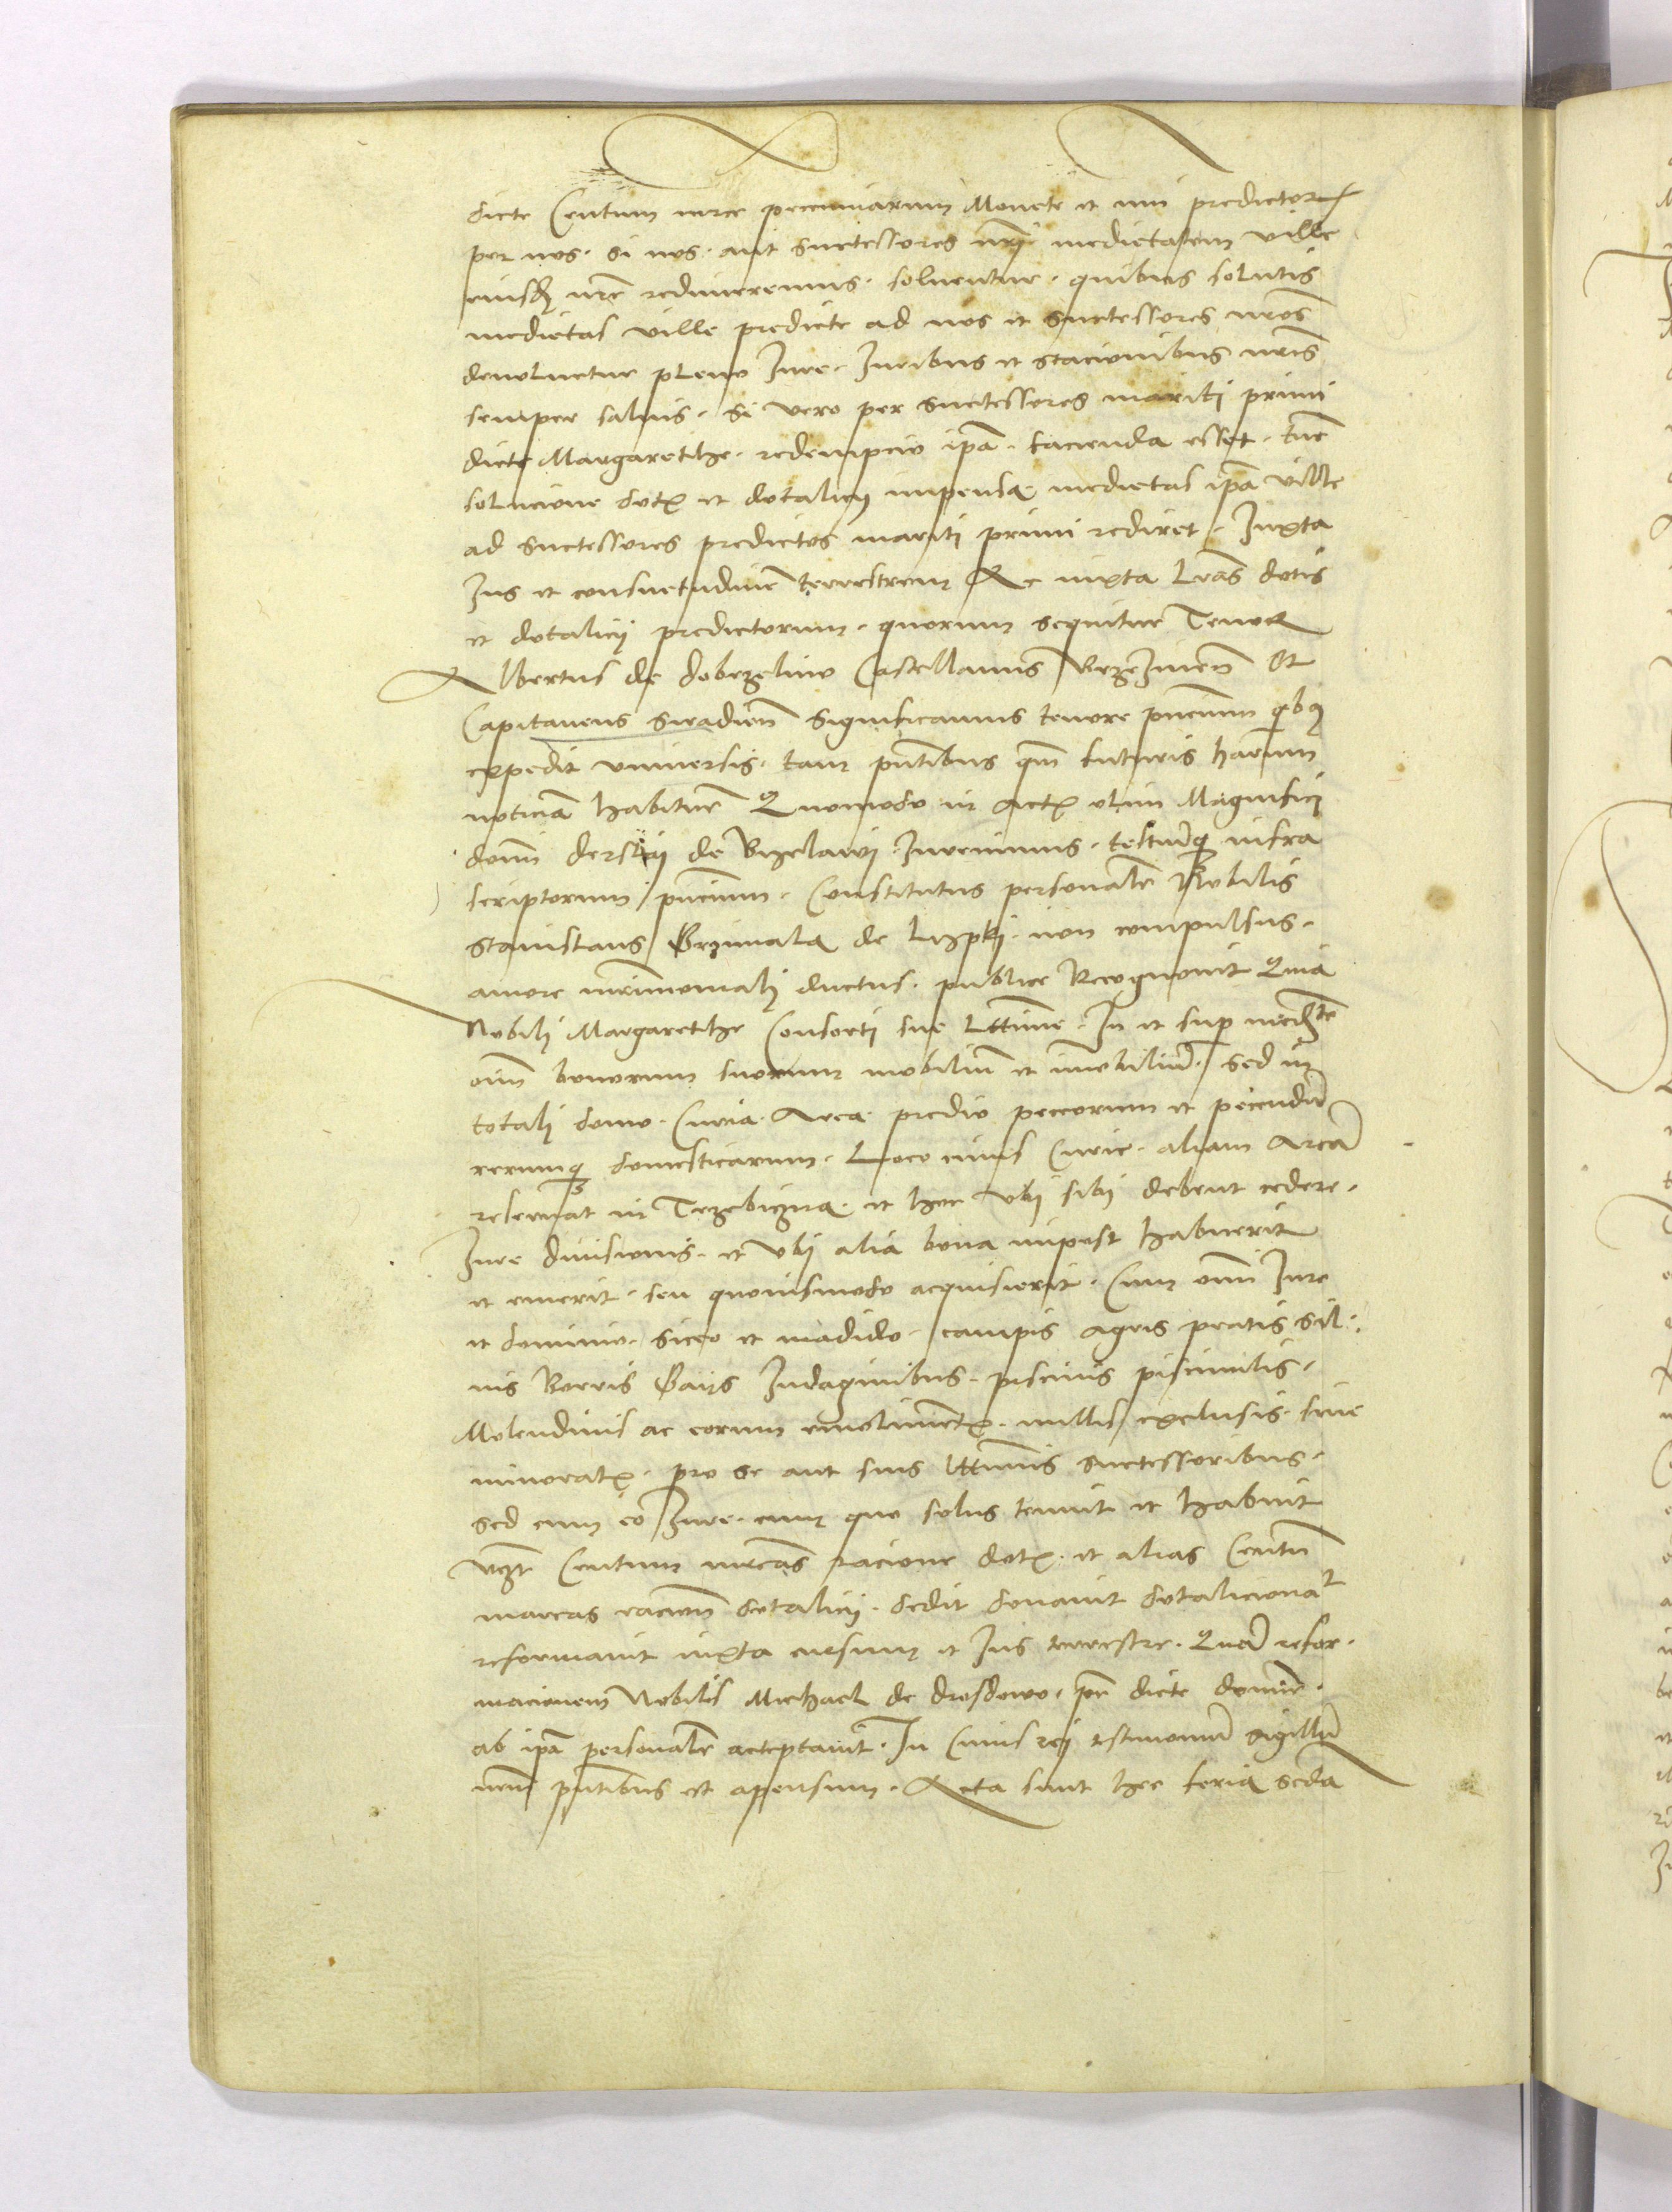 dicte Centum mrce pecuniarum Monete et nūi predictorꝝ
per nos · si nos · aut successores nr̄i medietatem ville
eiusdē nr̄e redimeremus · soluentur · quibus solutis
medietas ville predicte ad nos et successores nr̄os
deuoluetur pleno Iure · Iuribus et stacionibus nr̄is
semper saluis · si vero per successores mariti primi
dicte Margarethe · redempcio ip̄a · facienda esset · tūc
solucione dotꝭ et dotalicij impensa medietas ip̄a ville
ad successores predictos mariti primi rediret · Iuxta
Ius et consuetudinē terrestrem Ac iuxta Lrās dotis
et dotalicij predictorum · quorum sequitur Tenor
Albertus de dobrzelino Castellanus Brzezinen̄ Et
Capitaneus Siradien̄ Significamus tenore pn̄cium qᵇꝫ
expedit vniuersis · tam pn̄tibus qm̄ futuris harum
noticiā habiturꝭ Quomodo in actꝭ olim Magnifici
domī derslai de Rizelawi Inuenimus · testiumqꝫ infra
scriptorum pn̄cium · Constitutus personalr̄ Nobilis
Stanislaus Grzimala de Lizpki · non compulsus ·
amore mr̄imoniali ductus · publice Recognouit Quia
Nobili Margarethe Consorti sue Ltt̄ime · In et sup medᵗᵉ
oim̄ bonorum suorum mobiliū et imobiliū · sed in
totali domo · Curia · Area · predio peccorum et pecudū
rerumqꝫ domesticarum · Loco cuius Curie · aliam Areā
reseruat in Trzebiczna · et hec Vbi sibi debent cedere ·
Iure diuisionis · et Vbi alia bona inpost habuerit
et emerit · seu quouismodo acquisierit · Cum omī Iure
et dominio · sicco et madido · campis agris pratis sil:
uis Borris Gaijs Indaginibus · piscinis piscinulis ·
Molendinis ac eorum emolimentꝭ · nullis exclusis · siue
minoratꝭ · pro se aut suis lttimis successoribus ·
sed cum eo Iure · cum quo solus tenuit et habuit
vꝫt Centum mrcas racione dotꝭ · et alias Centū
marcas racion̄ dotalicij · dedit donauit dotalicionaᵗ
reformauit iuxta cursum et Ius terrestre · Quā refor ·
macionem Nobilis Michael de drosdowo · pr̄ dicte domine ·
ab ip̄a personalr̄ acceptauit · In Cuius rei testimoniū sigillū
nr̄m pn̄tibus est apensum · Acta sunt hec feria scd̄a